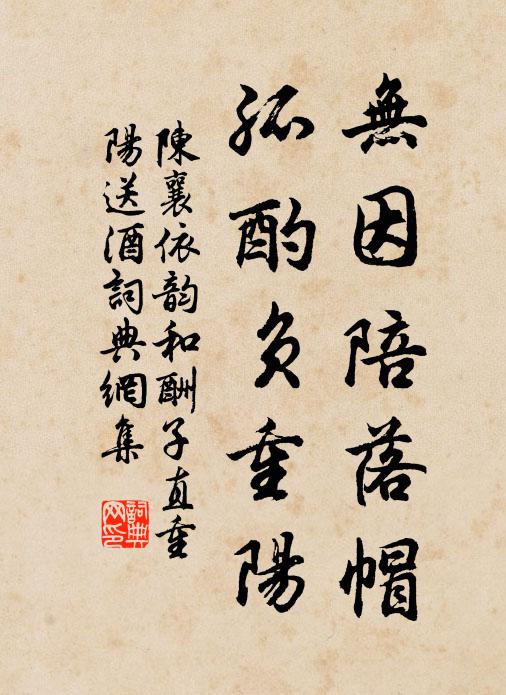 無因陪落帽
孤酌負重陽
陳襄依韵和酬子直重
陽送酒詞典網集
詞典
网印